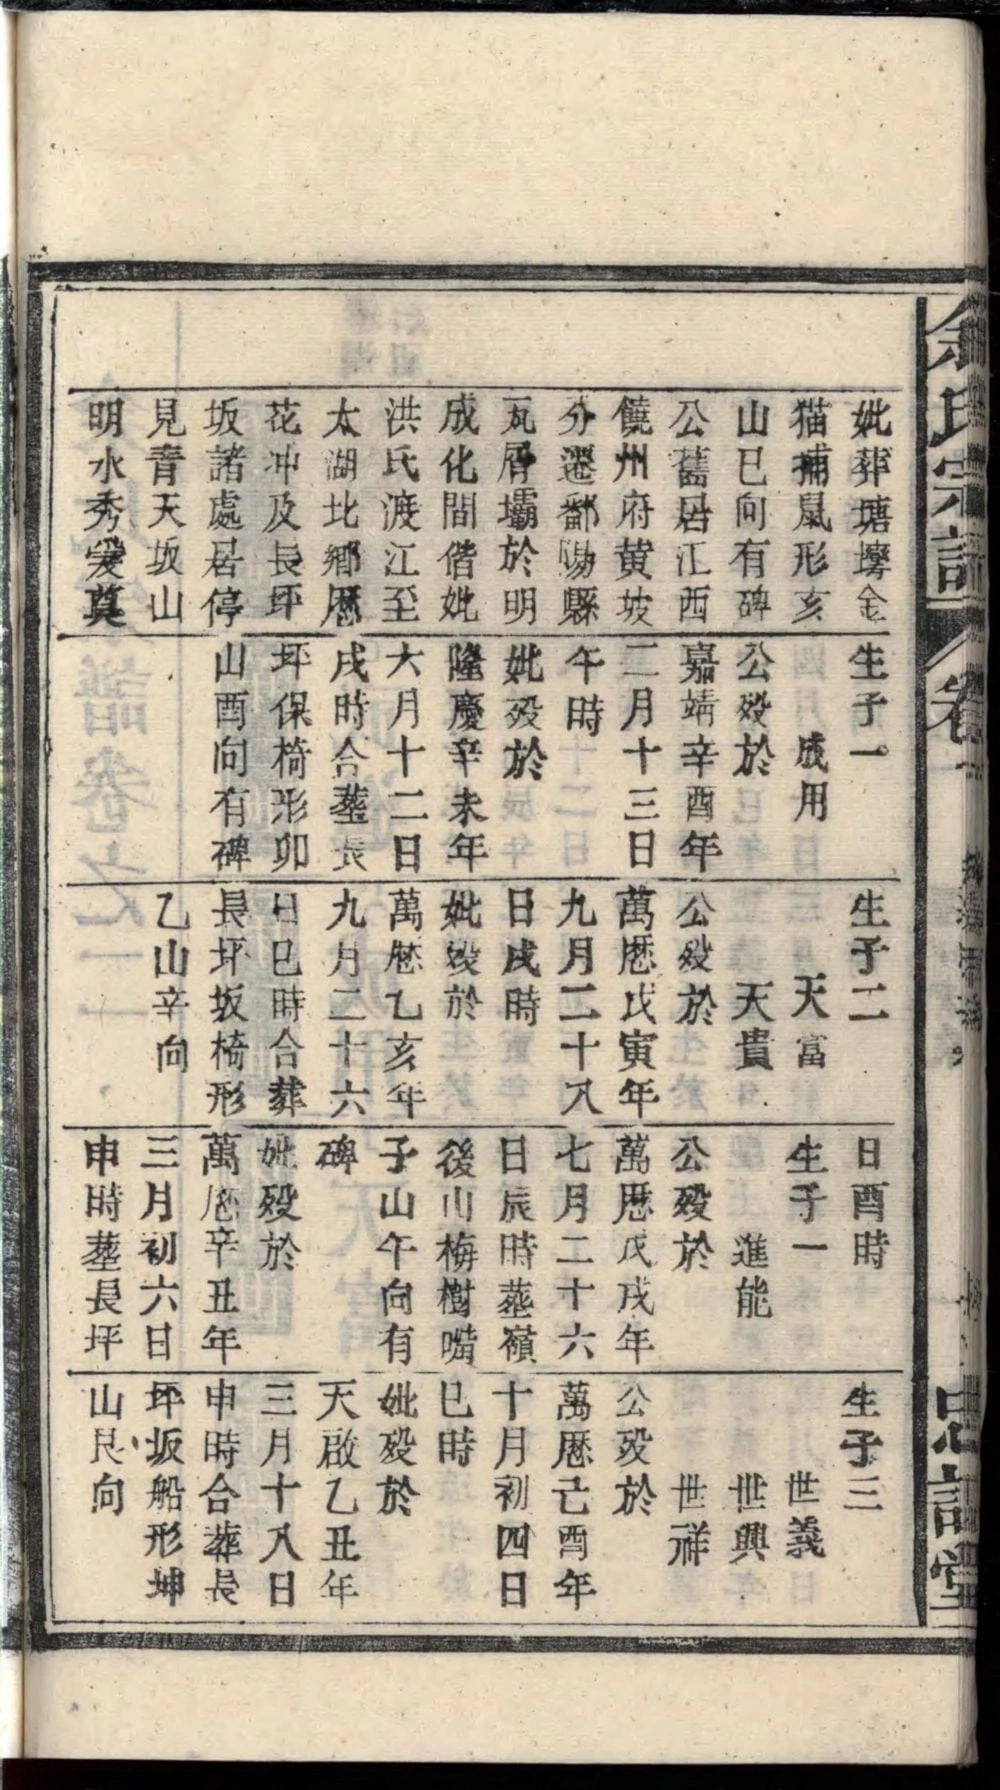 妣葬塘塝金
猫捕鼠形亥
山巳向有碑
公舊居江西
饒州府黄坡
分遷鄱陽縣
瓦屑壩於明
成化間偕妣
洪氏渡江至
太湖北鄉歷
花冲及長坪
坂諸處居停
見青天坂山
明水秀爰奠
生子一
成用
公殁於
嘉靖辛酉年
二月十三日
午時
妣殁於
隆慶辛未年
六月十二日
戌時合葬長
坪保椅形卯
山酉向有碑
生子二
天富
天貴
公殁於
萬歷戊寅年
九月二十八
日戌時
妣殁於
萬歷乙亥年
九月二十六
日巳時合葬
長坪坂椅形
乙山辛向
日酉時
生子一
進能
公殁於
萬歷戊戌年
七月二十六
日辰時葬嶺
後山梅樹嘴
子山午向有
碑
妣殁於
萬歷辛丑年
三月初六日
申時葬長坪
生子三
世義
世興
世祥
公殁於
萬歷己酉年
十月初四日
巳時
妣殁於
天啟乙丑年
三月十八日
申時合葬長
坪坂船形坤
山艮向
余氏宗譜
卷一